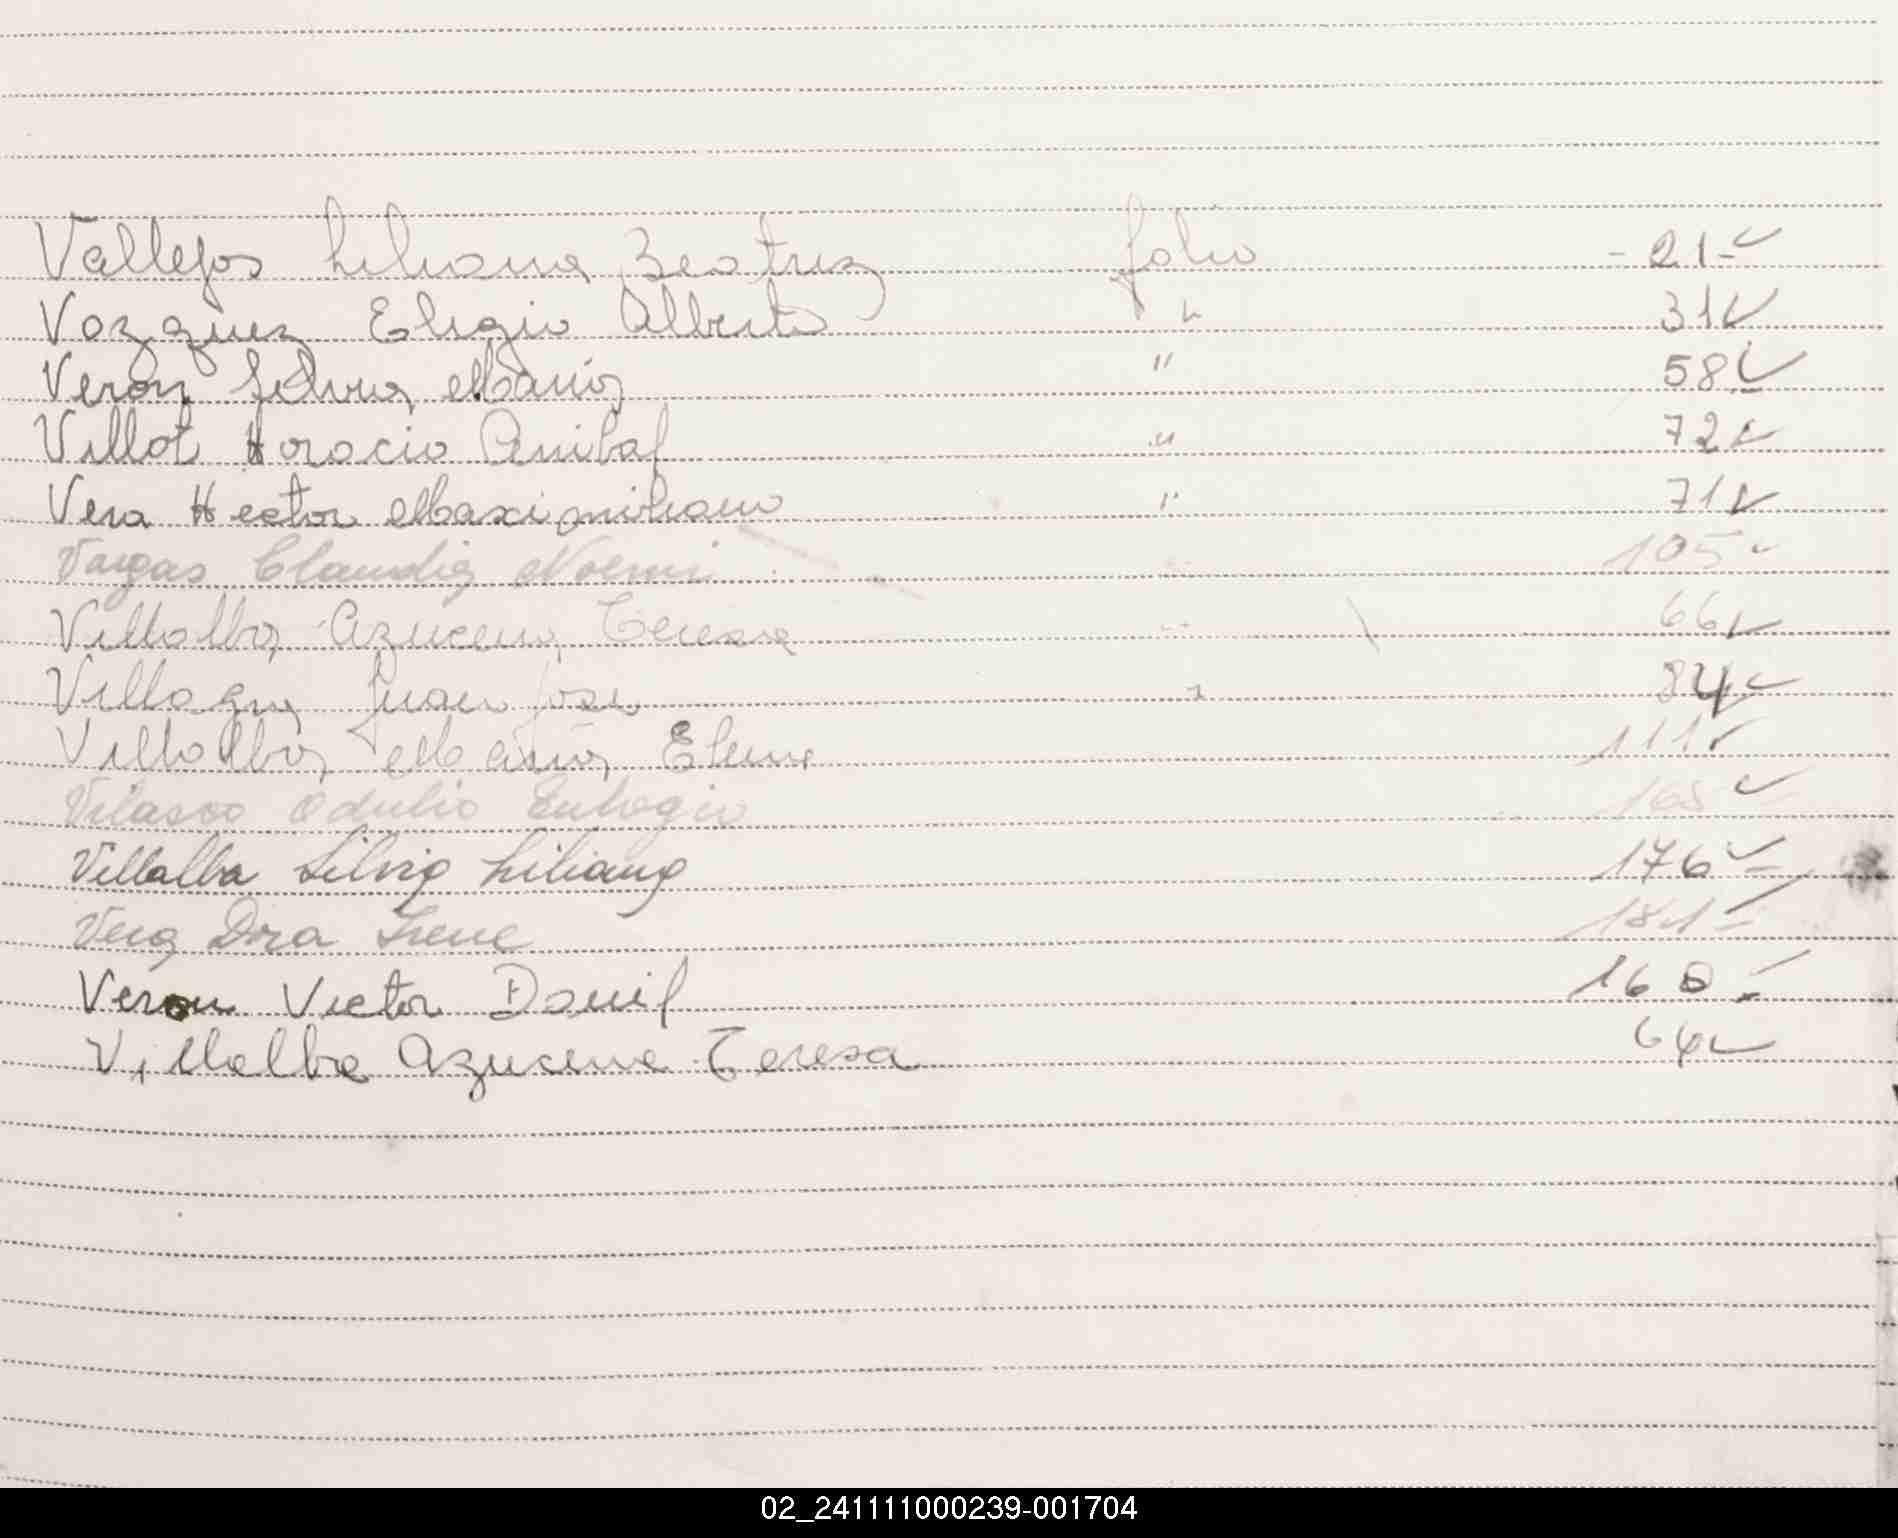 Vallejos Liliana Beatriz folio - 21 - ✓
Vazquez Eligio Alberto " 31 ✓
Veron Silvia Maria " 58 ✓
Villot Horacio Anibal " 72 ✓
Vera Hector Maximiliano " 71 ✓
Vargas Claudia Noemi " 105 ✓
Villalba Azucena Teresa " 66 ✓
Juan Jose " 84 ✓
Villalba Maria Elena 111 ✓
Velasco Odulio Eulogio 165 ✓
Villalba Silvia Liliana 176 ✓
Vera Dra Irene 181 -
Veron Victor Daniel 160 -
Villalba Azucena Teresa 64 ✓
02_241111000239-001704